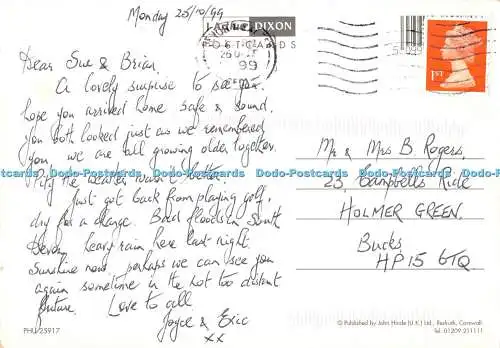 Monday 25/10/99
DIXON
POSTCARDS
99
1ST
Dear Sue & Brian,
A lovely surprise to see you,
hope you arrived home safe & sound,
you both looked just as we remembered
you, we are all growing older together.
Pity the weather wasn't better.
Just got back from playing golf,
dry for a change. Bad floods in South
Devon, heavy rain here last night.
Sunshine now, perhaps we can see you
again sometime in the not too distant
future. Love to all
Joyce & Eric
xx
Mr & Mrs B Rogers,
23, Campbells Ride
HOLMER GREEN.
Bucks
HP15 6TQ
Dodo-Postcards Dodo-Postcards Dodo-Postcards Dodo-Postcards
PHU 25917
© Published by John Hinde (U.K.) Ltd., Redruth, Cornwall.
Tel: 01209 211111